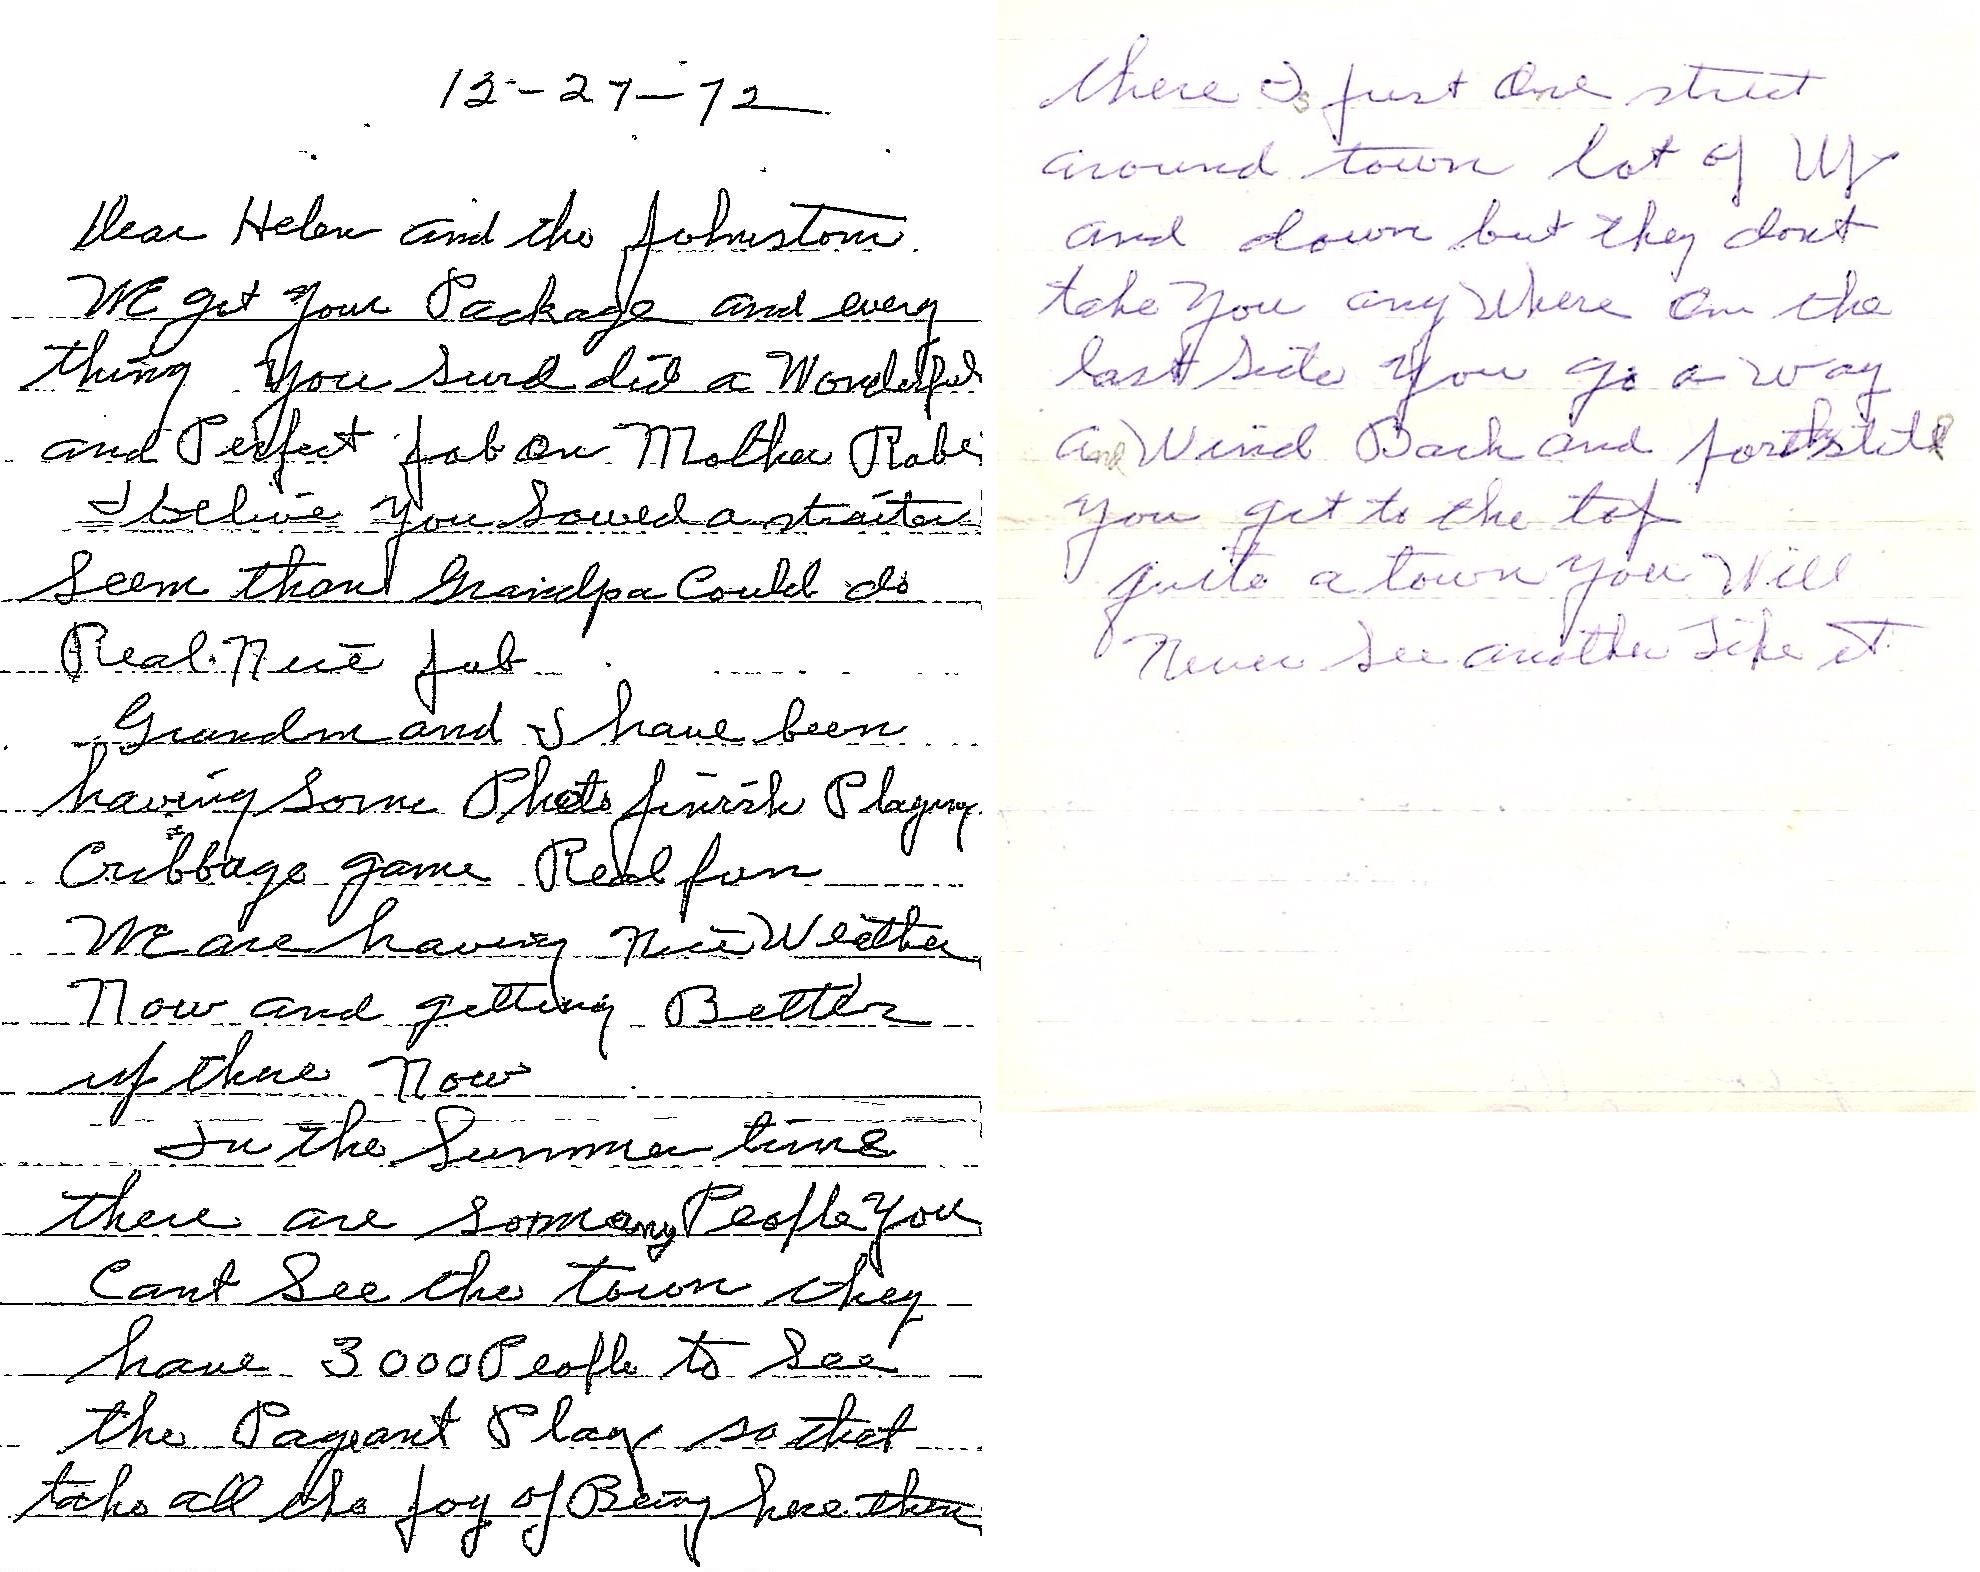 12-27-72
Dear Helen and the Johnstons.
We got your Package and every
thing You Sure did a Wonderful
and Perfect job on Mother Robe
I belive you Sowed a straiter
Seem than Grandpa Could do
Real Nice job
Grandm and I have been
having Some Photo finish Playing
Cribbage game Real fun
We are having Nice Weather
Now and getting Better
up there Now
In the Summer time
there are so many People You
Cant See the town they
have 3000 People to See
the Pageant Play so that
take all the joy of Being here then
there Is just One street
around town lot of Up
and down but they dont
take You any Where On the
last Side You go a way
and Wind Back and forth
you get to the top
quite a town you Will
Never See another Like it